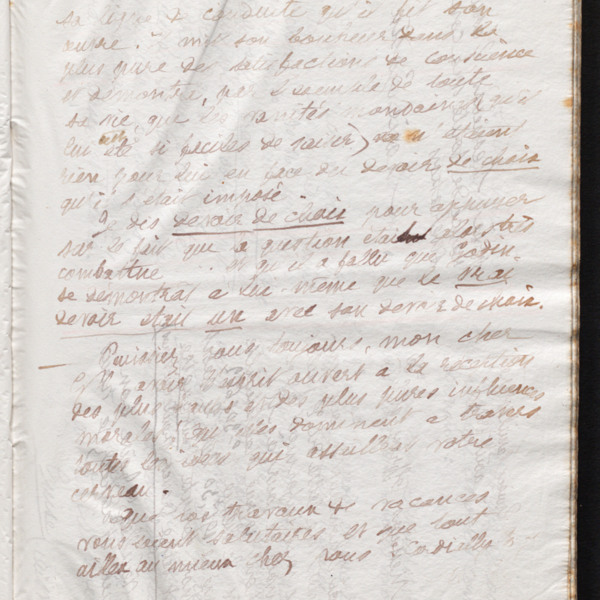 sa ligne de conduite qu'il fit son
œuvre. mit son bonheur dans la
plus pure des satisfactions de conscience
et démontra, par l'ensemble de toute
sa vie, que les vanités mondaines (qu'il
lui eût été si faciles de saisir) ne
rien pour lui en face du devoir de choix
qu'il s'était imposé
Je dis devoir de choix pour appuyer
sur le fait que la question était alors très
combattue et qu'il a fallu que Godin
se démontrât à lui-même que le vrai
devoir était un avec son devoir de choix.
Puissiez vous toujours, mon cher
l'esprit ouvert à la réception
des plus hautes et des plus pures influences
morales qu'elles dominent à travers
toutes les idées qui assaillent votre
cerveau.
Que vos travaux & vacances
vous soient salutaires et que tout
aille au mieux chez vous